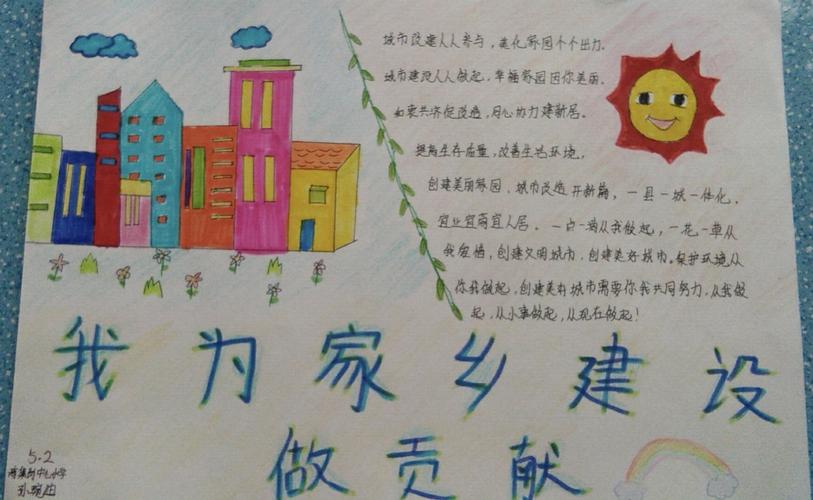 城市改建人人参与，美化家园个个出力。
城市建设人人做起，幸福家园因你美丽。
和衷共济促改造，同心协力建新居。
提高生存质量，改善生活环境，
创建美丽家园，城市改造开新篇，一县一城一体化，
宜业宜商宜人居。一点一滴从我做起，一花一草从
我爱惜，创建文明城市，创建美好城市。保护环境从
你我做起，创建美好城市需要你我共同努力，从我做
起，从小事做起，从现在做起！
我为家乡建设
做贡献
5.2
中心小学
孙